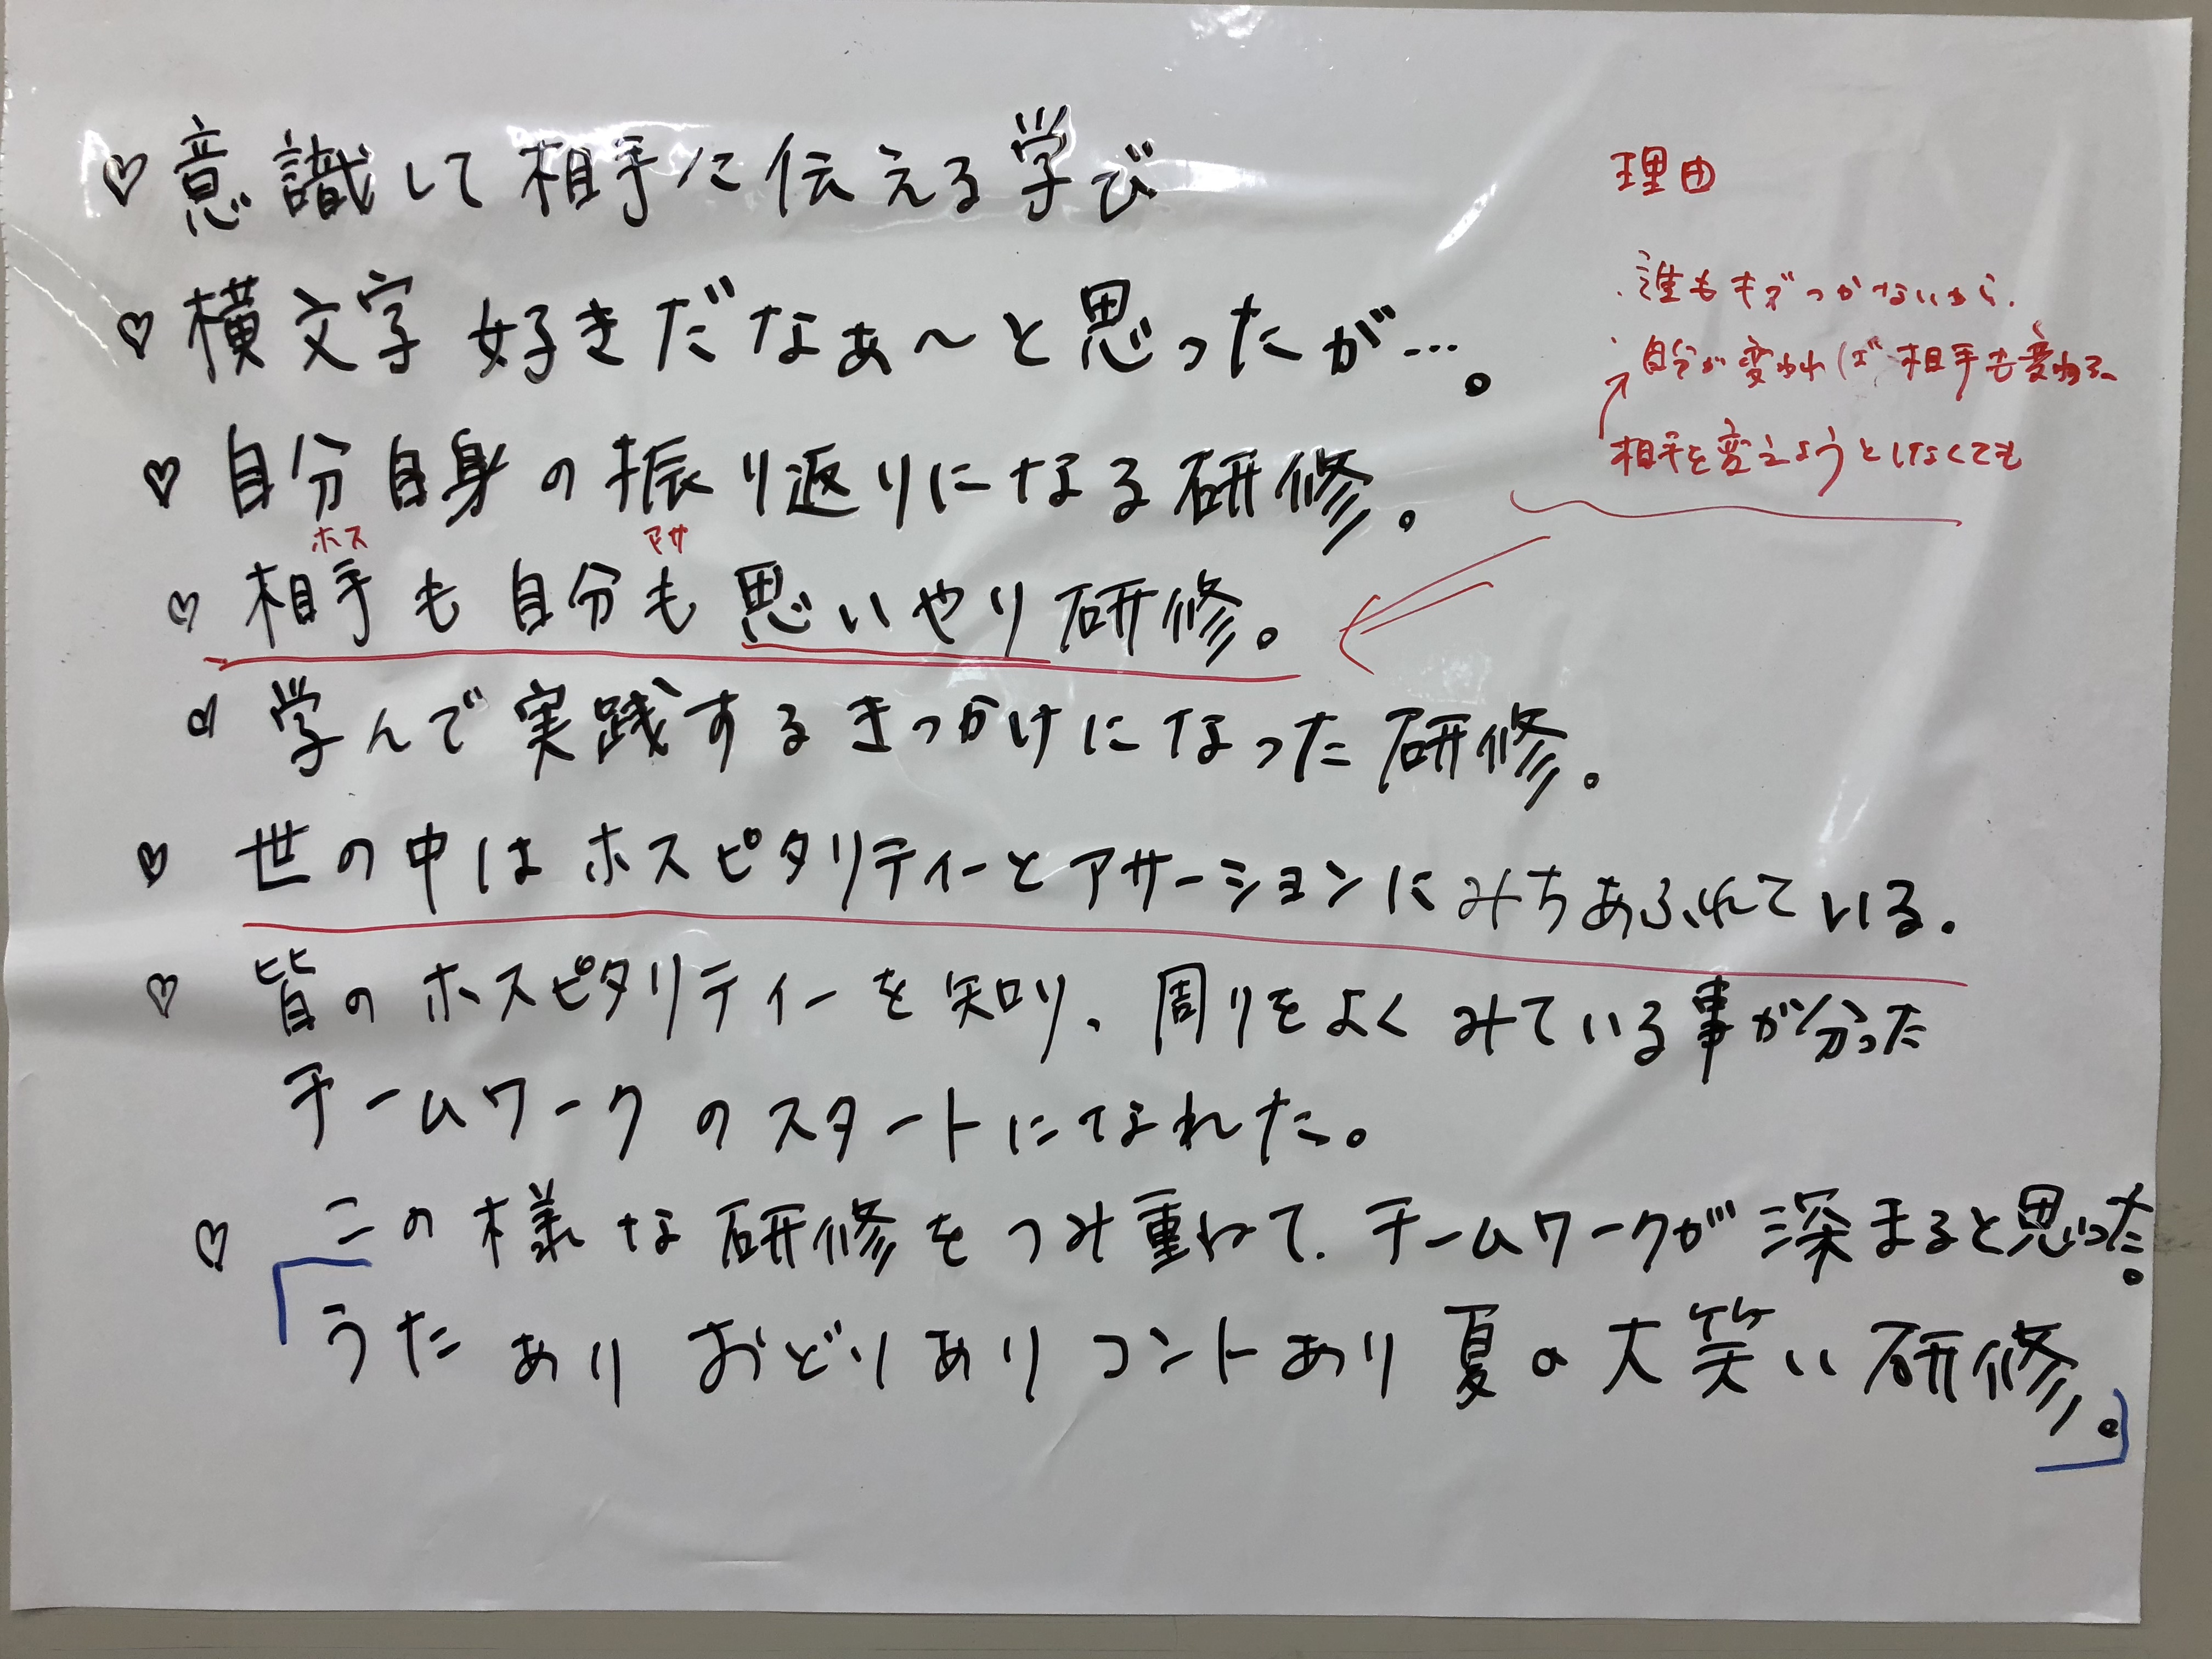 ♡ 意識して相手に伝える学び
♡ 横文字 好きだなぁ〜と思ったが…。
♡ 自分自身の振り返りになる研修。
ホス アサ
♡ 相手も自分も思いやり研修。
♡ 学んで実践するきっかけになった研修。
♡ 世の中はホスピタリティーとアサーションにみちあふれている。
♡ 皆のホスピタリティーを知り、周りをよくみている事が分った
チームワークのスタートになれた。
♡ この様な研修をつみ重ねて、チームワークが深まると思った。
「うたあり おどりあり コントあり 夏の大笑い研修。」
理由
・誰もキズつかないから、
・自分が変われば相手も変わる、
相手を変えようとしなくても